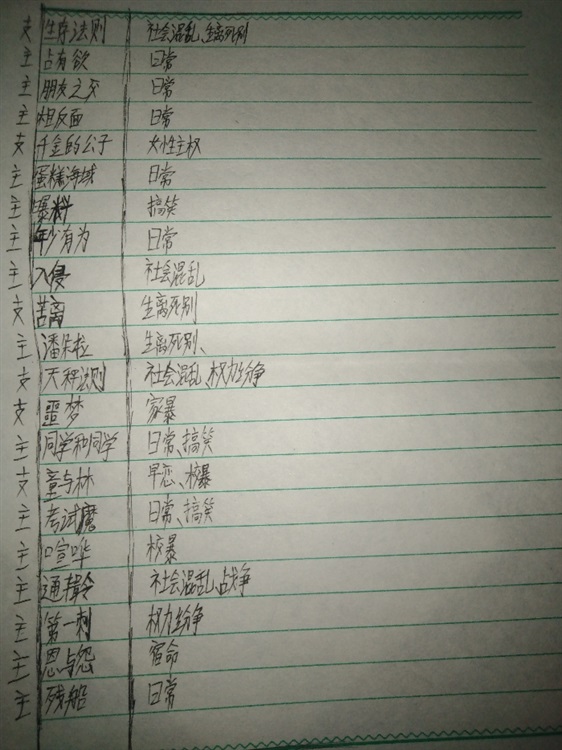 支 生存法则 社会混乱、生离死别
主 占有欲 日常
主 朋友之交 日常
主 相反面 日常
支 千金的公子 女性主权
主 蛋糕海域 日常
主 爆料 搞笑
主 年少有为 日常
主 入侵 社会混乱
支 苦离 生离死别
主 潘朵拉 生离死别、
支 天秤法则 社会混乱、权力纷争
支 噩梦 家暴
主 同学和同学 日常、搞笑
支 童与林 早恋、校暴
主 考试魔 日常、搞笑
主 喧哗 校暴
主 通缉令 社会混乱、战争
主 第一刺 权力纷争
主 恩与怨 宿命
主 残船 日常